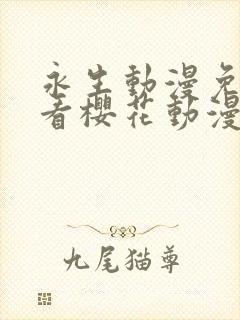 永生動漫免
看櫻花動漫
九尾猫尊